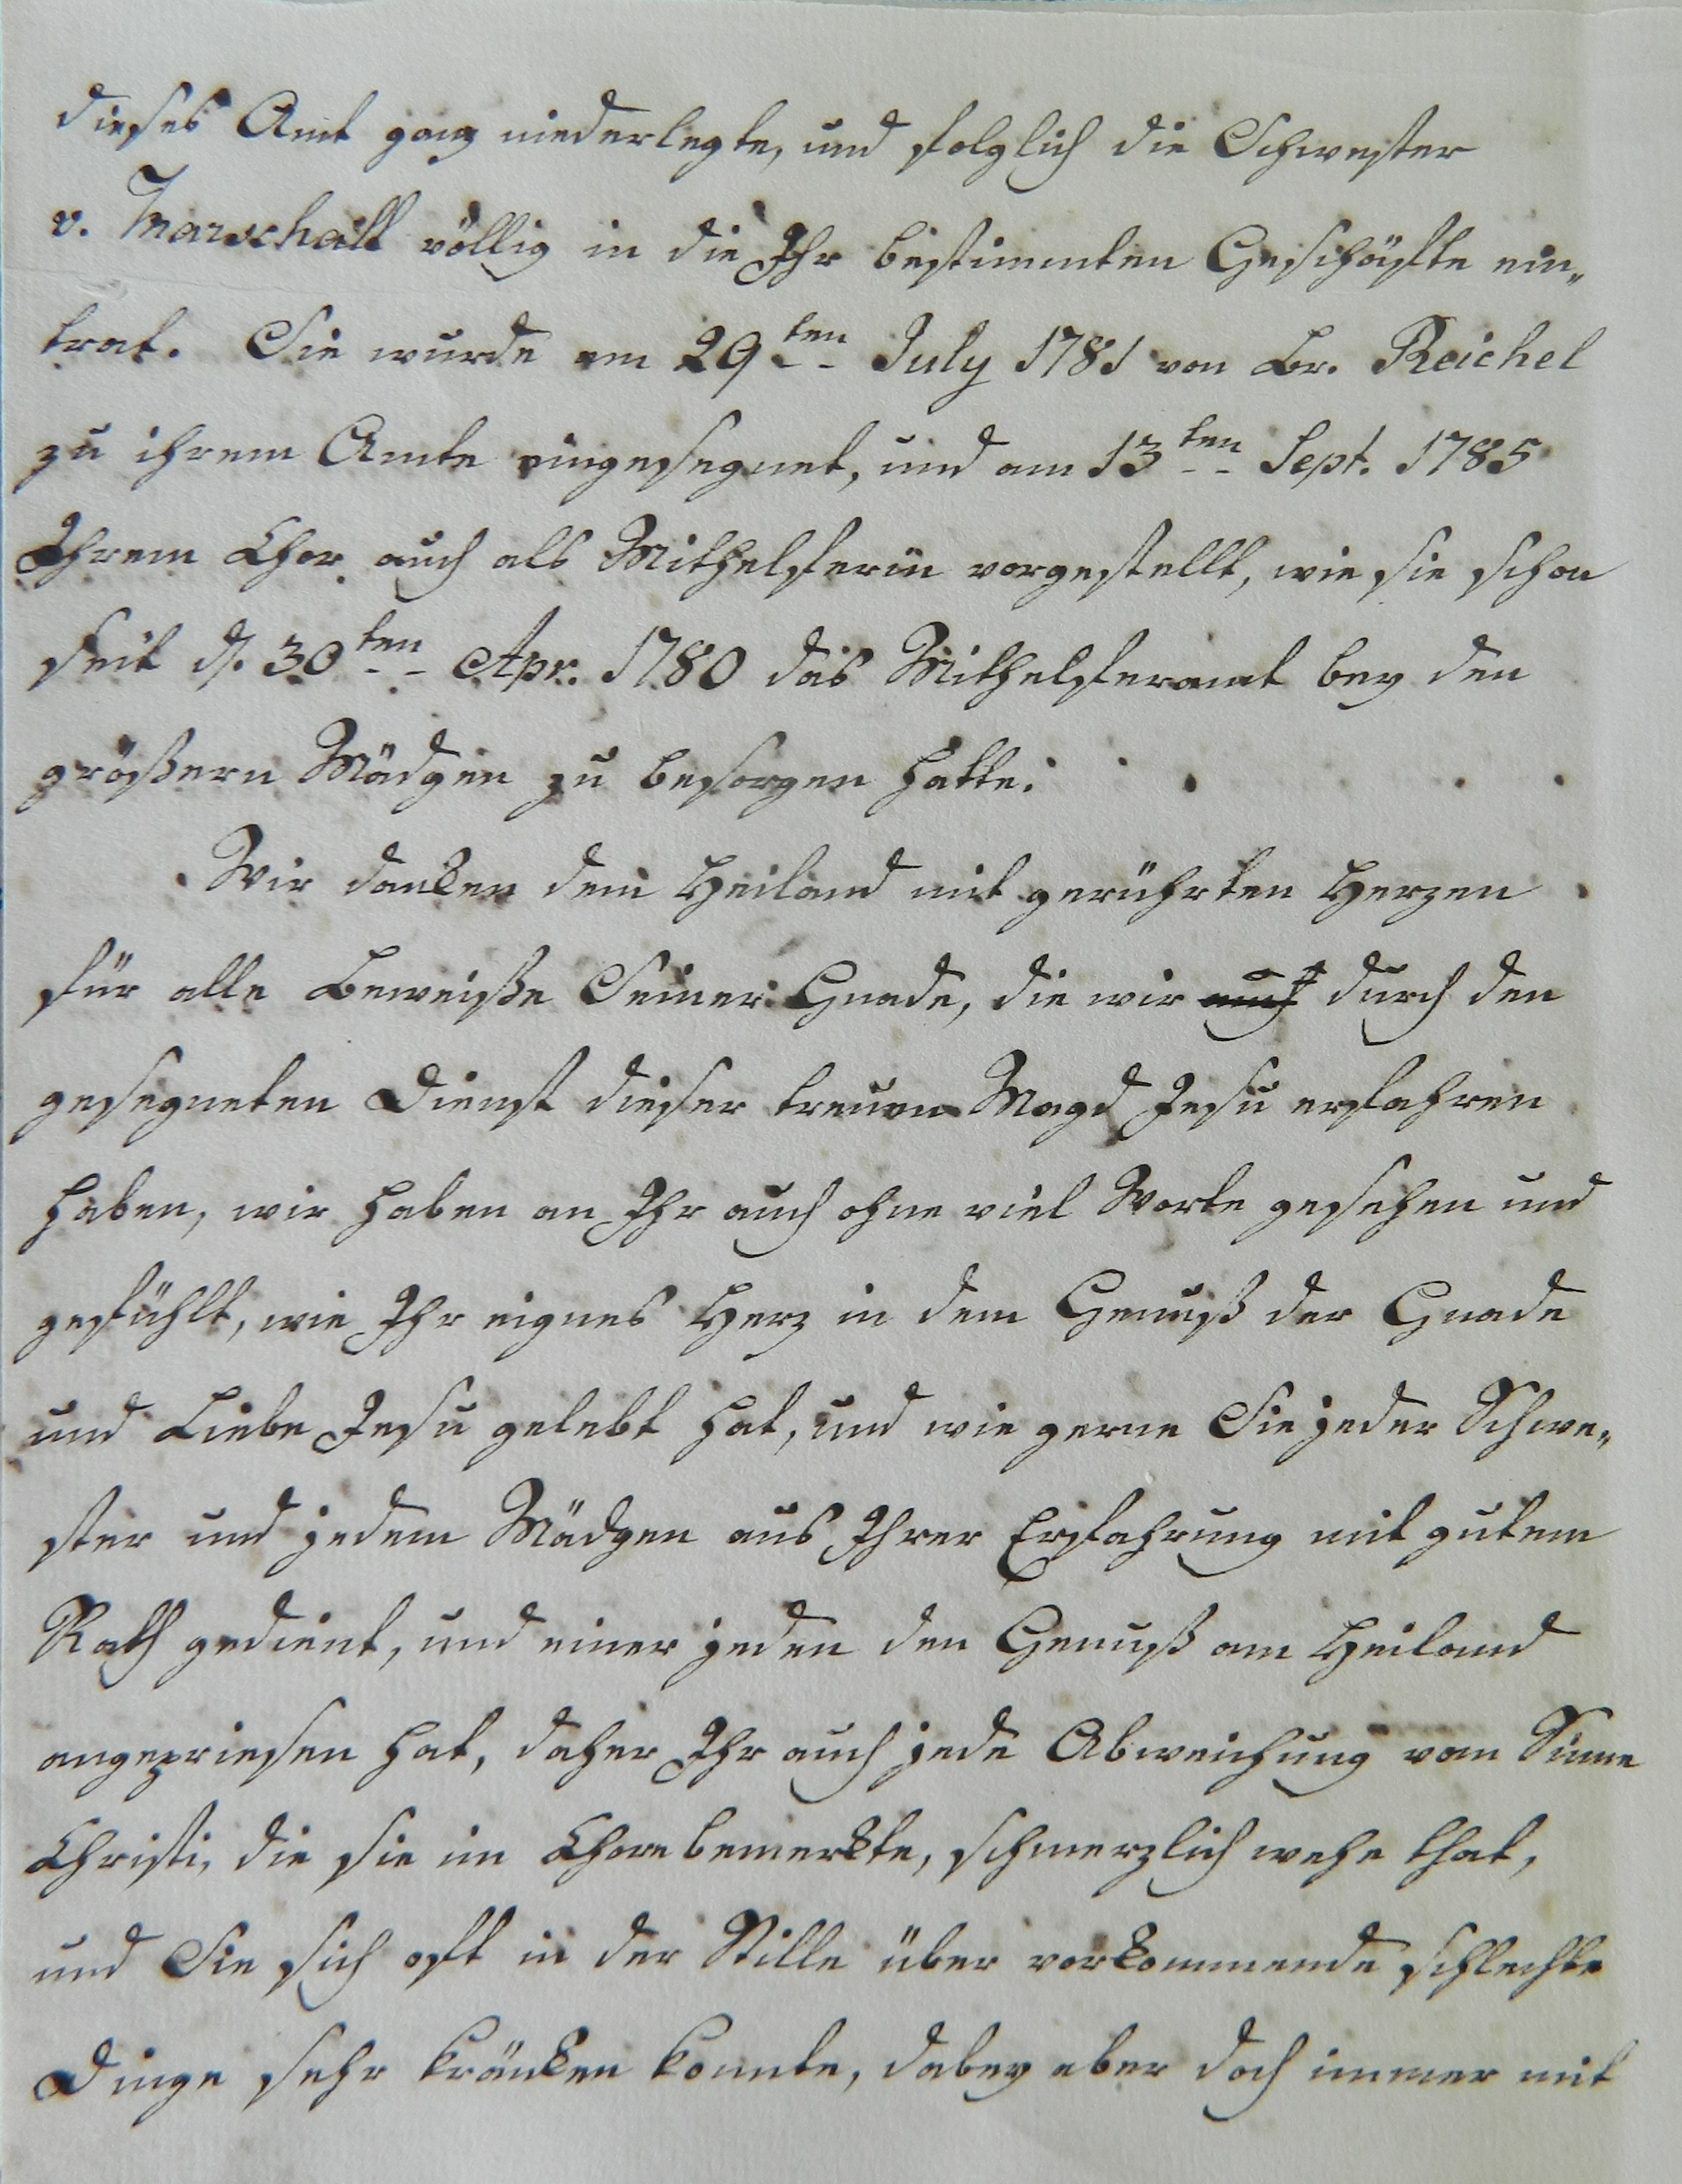 dieses Amt ganz niederlegte, und folglich die Schwester
v. Marschall völlig in die Ihr bestimmten Geschäfte ein„
trat. Sie wurde am 29ten July 1781 von Br. Reichel
zu ihrem Amte eingesegnet, und am 13ten Sept. 1785
Ihrem Chor auch als Mithelferin vorgestellt, wie sie schon
seit d. 30ten Apr. 1780 das Mithelferamt bey den
größern Mädgen zu besorgen hatte.
Wir danken dem Heiland mit gerührten Herzen
für alle Beweiße Seiner Gnade, die wir auch durch den
gesegneten Dienst dieser treuen Magd Jesu erfahren
haben, wir haben an Ihr auch ohne viel Worte gesehen und
gefühlt, wie Ihr eignes Herz in dem Genuß der Gnade
und Liebe Jesu gelebt hat, und wie gerne Sie jeder Schwe„
ster und jedem Mädgen aus Ihrer Erfahrung mit gutem
Rath gedient, und einer jeden den Genuß am Heiland
angepriesen hat, daher Ihr auch jede Abweichung vom Sinne
Christi, die sie im Chore bemerkte, schmerzlich wehe that,
und Sie sich oft in der Stille über vorkommende schlechte
Dinge sehr kränken konnte, dabey aber doch immer mit